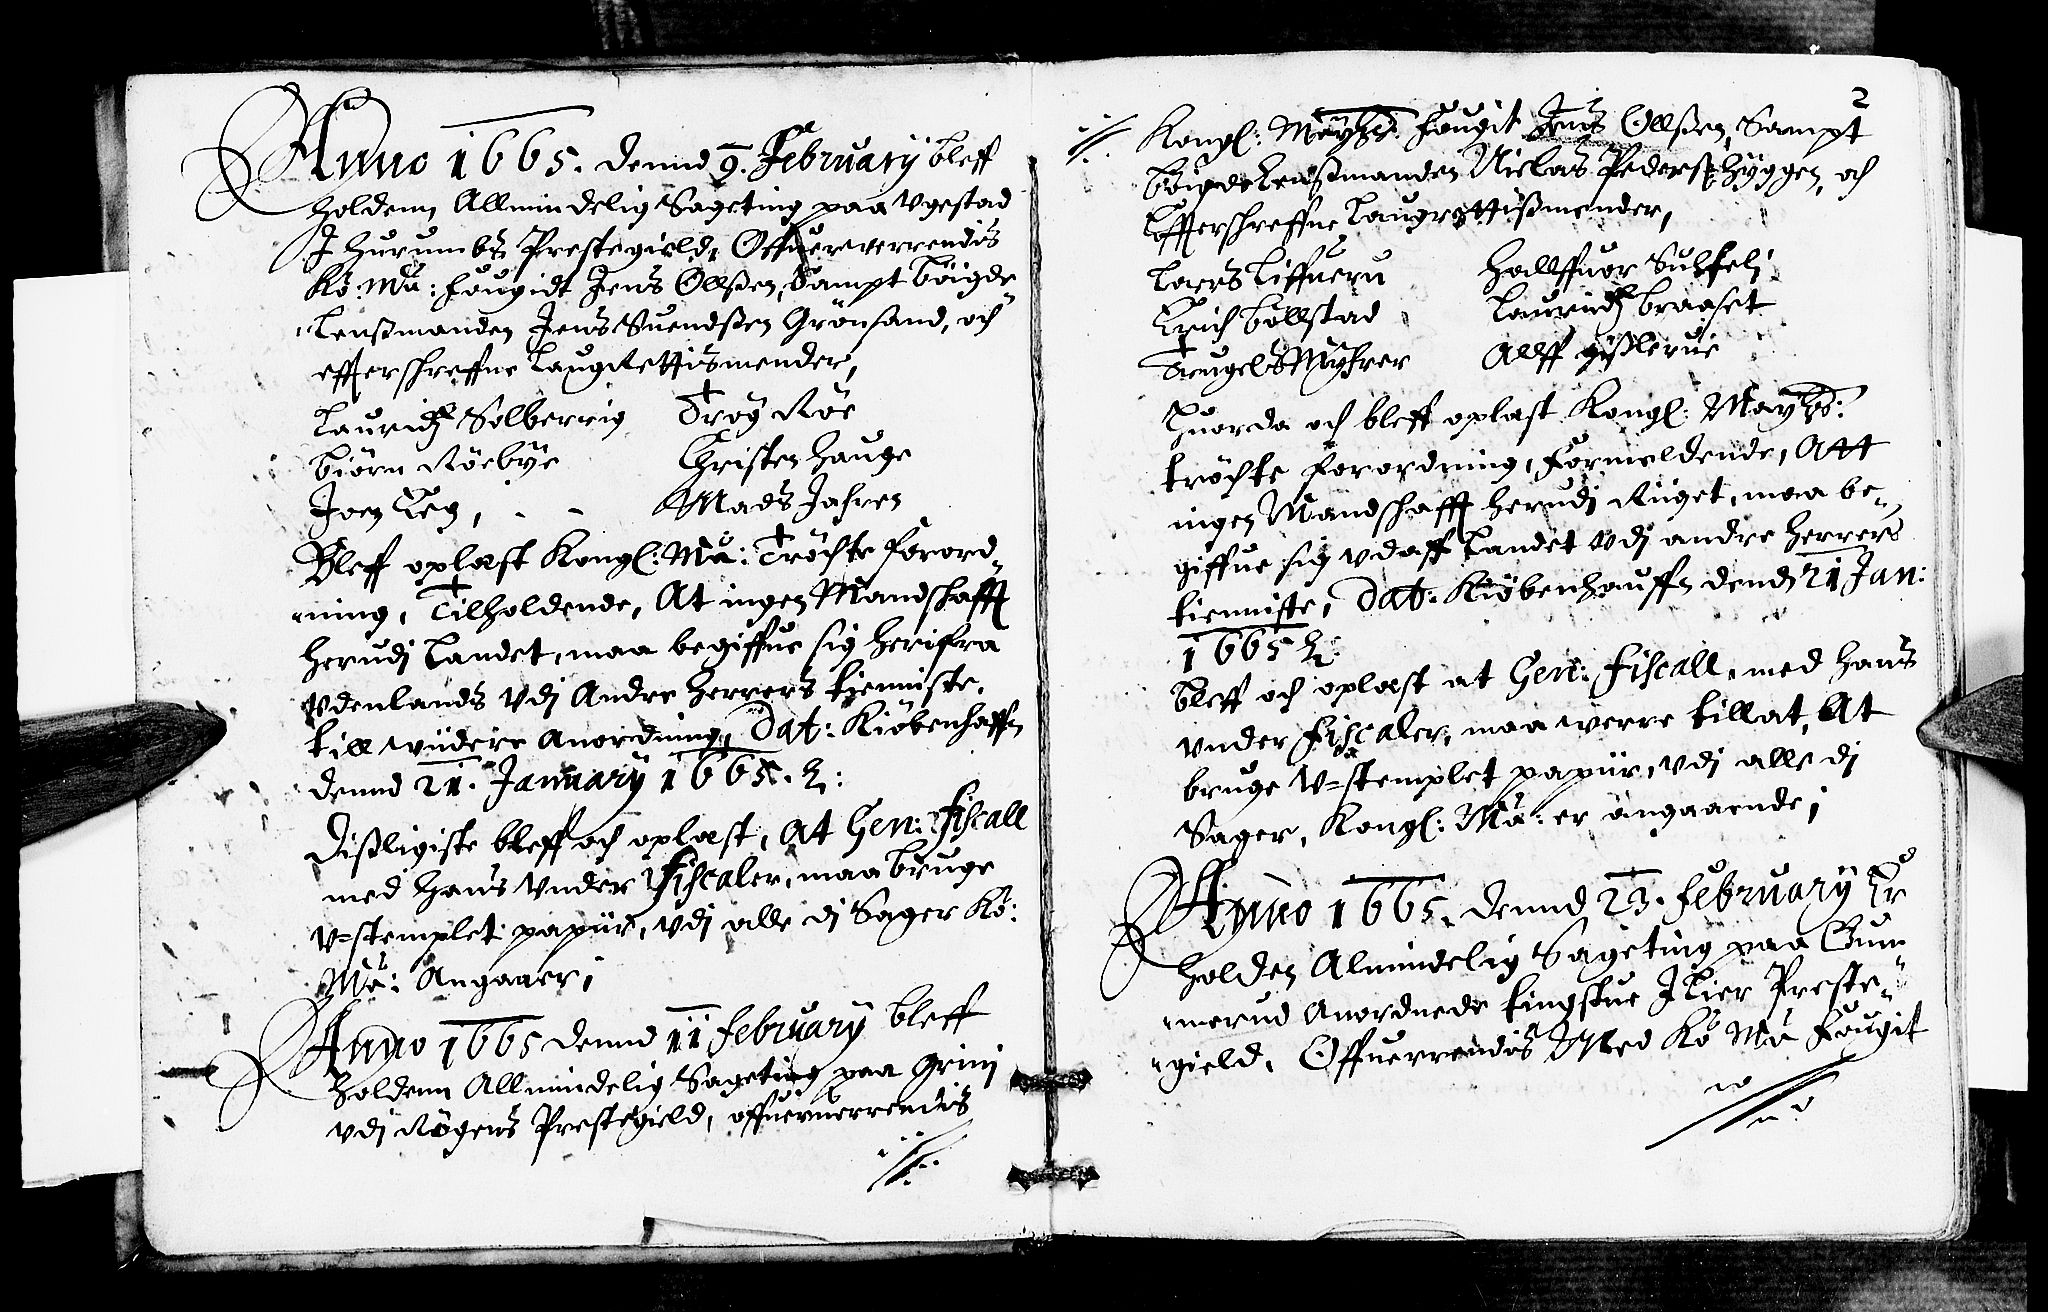 Anno 1665. dennd 9. February bleff
holdenn Allmindelig Sageting paa Vgestad
J Hurumbs Prestegield, Offuerverrendis
Kö: Ma: fougidt Jens Ollßen, Sampt böigde
Lenßmanden Jens Suendßen Grönsand, och
effterschreffne Laugrettismender,
Lauridz Solberrig Trög Röe
Biörn Röebÿe Christen Hauge
Joen Eeg, - - Mads Jahren
Bleff oplæst Kongl: Ma: Tröchte forord-
ning, Tilholdende, At ingen Mandschafft
herudj Landet, maa begiffue sig herifra
Vdenlands Vdj Andre Herrers tienniste,
till widere Anordning, Dat: Kiöbenhaffn
dennd 21. January 1665. &:
Dißligiste bleff och oplæst, At Gen: Fiscall
med hans Vnder Fiscaler, maa bruge
V=stemplet papiir, Vdj alle dj Sager Kö:
Ma: Angaaer;
Anno 1665 dennd 11 February bleff
holdenn Allmindelig Sageting paa Grini
Vdj Rögens Prestegield, offueruerrendis
2
Kongl: Mayßt: fougit Jens Ollßen, Sampt
böigde Lenßmanden Nielas Peders: Hyggen, och
Effterschreffne Laugrettißmender,
Laers Liffueru Hallffuor Suhfelj
Erich böllstad Lauridz braaset
Teugels Myhrer Allff gißlerue
Huorda och bleff oplæst Kongl: Mayts:
tröchte forordning, Formeldende, Att
ingen Mandschafft herudj Riiget, maa be-
giffue sig vdaff Landet Vdj andre Herrers
tienniste, Dat: Kiöbenhauffn dend 21 Jan:
1665 &:
bleff och oplæst at Gen: Fiscall, med hans
vnder Fiscaler, maa werre tillat, At
bruge V=stemplet papiir, Vdj alle dj
Sager, Kongl: Ma: er angaaende;
Anno 1665. dennd 23. February Er
holden Almindelig Sageting paa Gum
merud Anordnede tingstue J Lier Preste-
gield, Offuerrendis Med Kö Ma Fougit